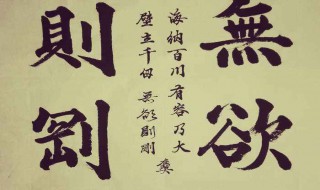 無欲
海納百川有容乃大
壁立千仞無欲則剛
則剛